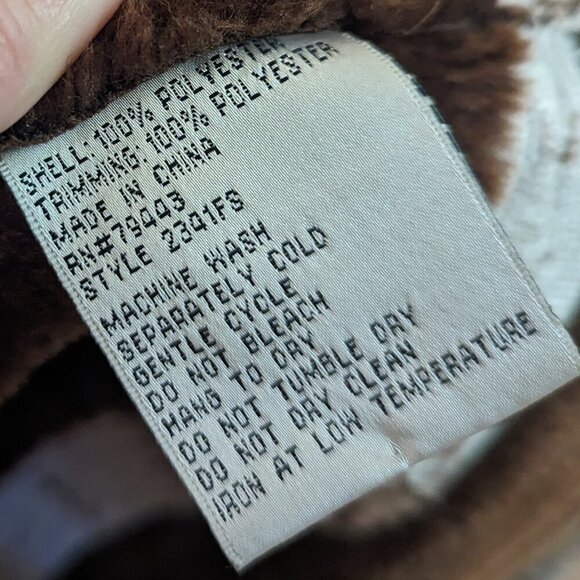 SHELL:100% POLYESTER
TRIMMING:100% POLYESTER
MADE IN CHINA
RN#79443
STYLE 2341FS
MACHINE WASH
SEPARATELY COLD
GENTLE CYCLE
DO NOT BLEACH
HANG TO DRY
DO NOT TUMBLE DRY
DO NOT DRY CLEAN
IRON AT LOW TEMPERATURE